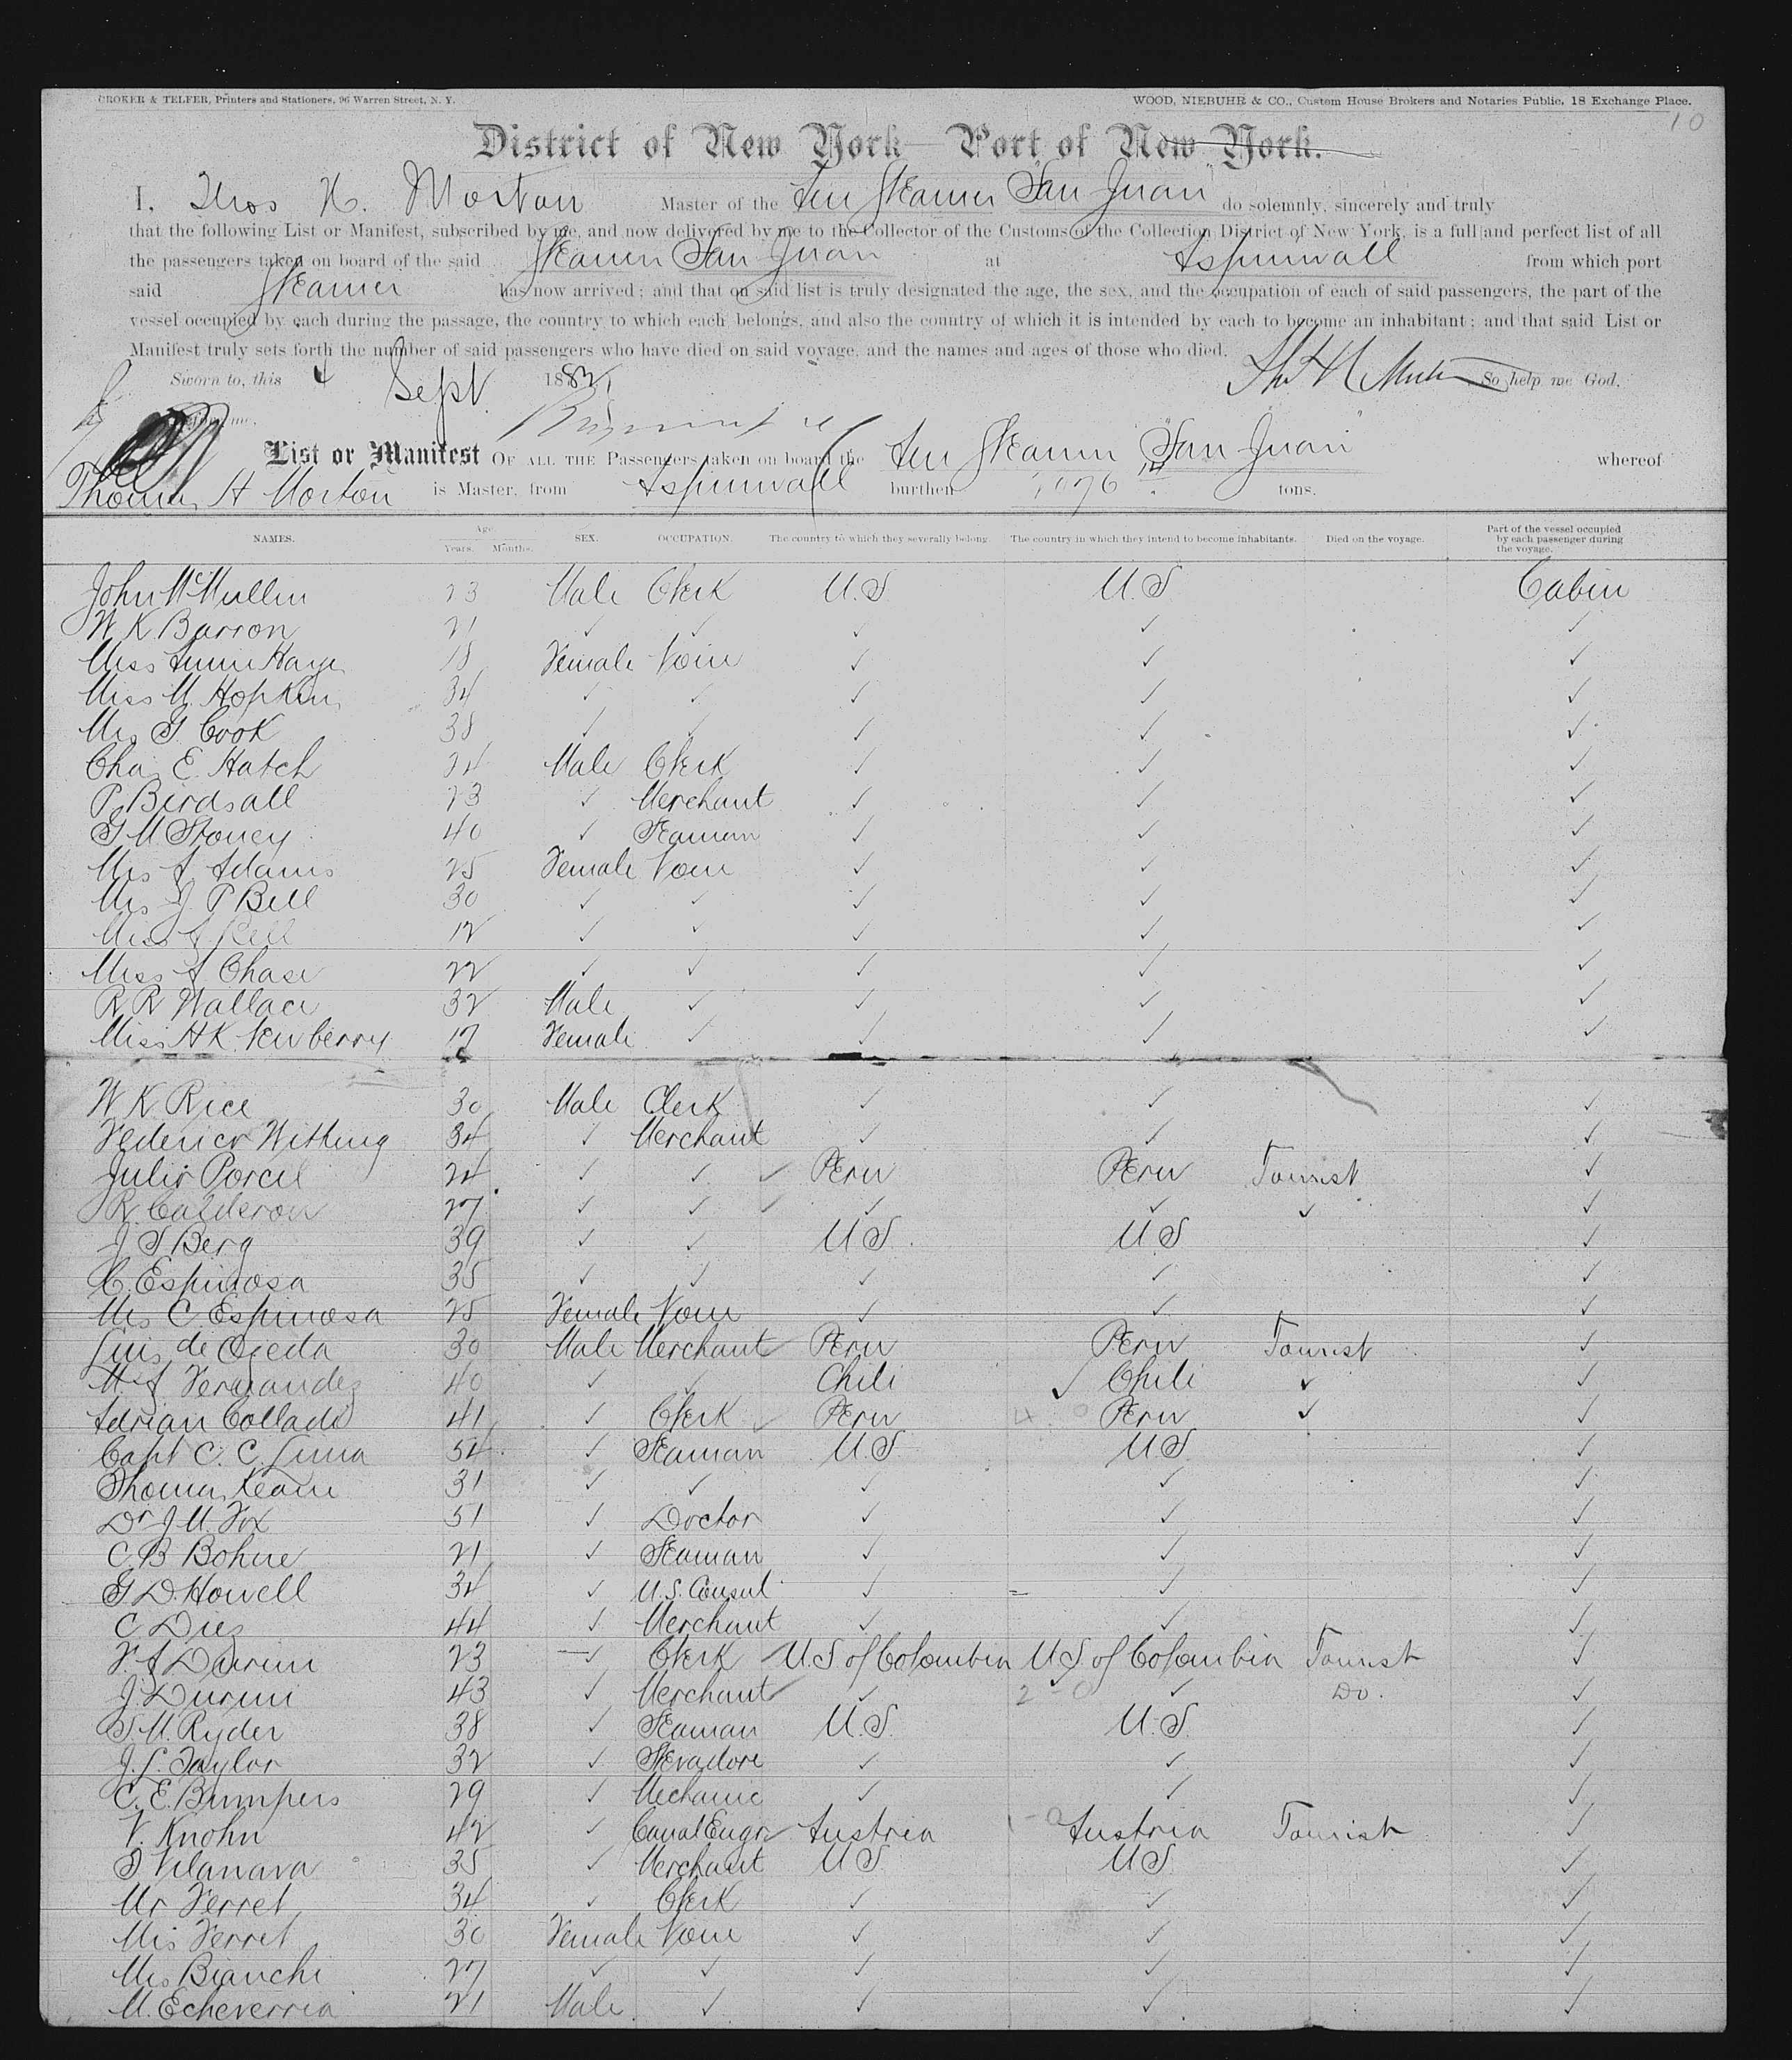 CROKER & TELFER, Printers and Stationers, 96 Warren Street, N. Y. WOOD, NIEBUHR & CO., Custom House Brokers and Notaries Public, 18 Exchange Place.
10
District of New York—Port of New York.
I, Thos H. Morton Master of the Am Steamer "San Juan" do solemnly, sincerely and truly
that the following List or Manifest, subscribed by me, and now delivered by me to the Collector of the Customs of the Collection District of New York, is a full and perfect list of all
the passengers taken on board of the said Steamer San Juan at Aspinwall from which port
said Steamer has now arrived; and that on said list is truly designated the age, the sex, and the occupation of each of said passengers, the part of the
vessel occupied by each during the passage, the country to which each belongs, and also the country of which it is intended by each to become an inhabitant; and that said List or
Manifest truly sets forth the number of said passengers who have died on said voyage, and the names and ages of those who died.
Sworn to, this 4 Sept 1882 So help me God,
List or Manifest OF ALL THE Passengers taken on board the Am Steamer "San Juan" whereof
Thomas H Morton is Master, from Aspinwall burthen tons.
NAMES. Age. Years. Months. SEX. OCCUPATION. The country to which they severally belong. The country in which they intend to become inhabitants. Died on the voyage. Part of the vessel occupied by each passenger during the voyage.
John McMullin 23 Male Clerk U.S U.S Cabin
W K Barron 21 ✓ ✓ ✓ ✓ ✓
Miss Annie Haye 18 Female None ✓ ✓ ✓
Miss M. Hopkins 34 ✓ ✓ ✓ ✓ ✓
Mrs G. Cook 38 ✓ ✓ ✓ ✓ ✓
Chas E. Hatch 24 Male Clerk ✓ ✓ ✓
P. Birdsall 23 ✓ Merchant ✓ ✓ ✓
G M Stoney 40 ✓ Seaman ✓ ✓ ✓
Mrs A Adams 25 Female None ✓ ✓ ✓
Mrs J. P Bell 30 ✓ ✓ ✓ ✓ ✓
Miss Bell 12 ✓ ✓ ✓ ✓ ✓
Miss A Chase 22 ✓ ✓ ✓ ✓ ✓
R R Wallace 32 Male ✓ ✓ ✓ ✓
Miss H K. Newberry 17 Female ✓ ✓ ✓ ✓
W K Rice 30 Male Clerk ✓ ✓ ✓
Federico Witting 34 ✓ Merchant ✓ ✓ ✓
Julio Porcel 24 ✓ ✓ ✓ Peru Peru Tourist ✓
R. Calderon 27 ✓ ✓ ✓ ✓ ✓ ✓ ✓
J S Berg 39 ✓ ✓ U S. U.S ✓
C. Espinosa 35 ✓ ✓ ✓ ✓ ✓
Mrs C Espinosa 25 Female None ✓ ✓ ✓
Luis de Ojeda 30 Male Merchant Peru Peru Tourist ✓
M. A Fernandez 40 ✓ ✓ Chili ✓ Chili ✓ ✓
Adrian Collado 41 ✓ Clerk ✓ Peru 4 0 Peru ✓ ✓
Capt C. C. Luna 54 ✓ Seaman U.S U.S ✓
Thomas Keane 31 ✓ ✓ ✓ ✓ ✓
Dr J M. Fox 51 ✓ Doctor ✓ ✓ ✓
C B Bohne 21 ✓ Seaman ✓ ✓ ✓
G D. Howell 34 ✓ U.S. Consul ✓ ✓ ✓
C Diez 44 ✓ Merchant ✓ ✓ ✓
F. A Durini 23 ✓ Clerk U.S of Colombia U S of Colombia Tourist ✓
J. Durini 43 ✓ Merchant ✓ 2-0 ✓ Do. ✓
S. M. Ryder 38 ✓ Seaman U.S. U.S. ✓
J. L. Taylor 32 ✓ Stevadore ✓ ✓ ✓
C. E. Bumpers 29 ✓ Mechanic ✓ ✓ ✓
V. Knohn 42 ✓ Canal Engr Austria 1-0 Austria Tourist ✓
J Vilanava 35 ✓ Merchant U S. U S. ✓
Mr Ferret 34 ✓ Clerk ✓ ✓ ✓
Mrs Ferret 30 Female None ✓ ✓ ✓
Mrs Bianchi 27 ✓ ✓ ✓ ✓ ✓
M. Echeverria 21 Male ✓ ✓ ✓ ✓